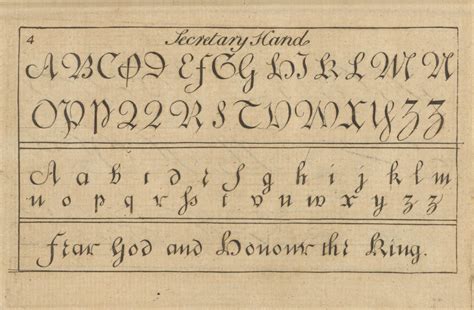 4 Secretary Hand
A B C D D E F G H I K L M N
O P P 2 2 R S T V W X Y Z Z
A a b c d e f g h i j k l m
n o p q r s t v u w x y z z
Fear God and Honour the King.